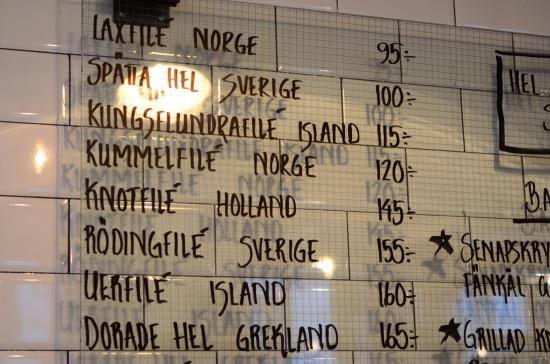 LAXFILÉ NORGE 95:-
SPÄTTA HEL SVERIGE 100:-
KUNGSFLUNDRAFILÉ ISLAND 115:-
KUMMELFILÉ NORGE 120:-
KNOTFILÉ HOLLAND 145:-
RÖDINGFILÉ SVERIGE 155:-
UERFILÉ ISLAND 160:-
DORADE HEL GREKLAND 165:-
HEL
S
BA
★ SENAPSKRY
FÄNKÅL
★ GRILLAD